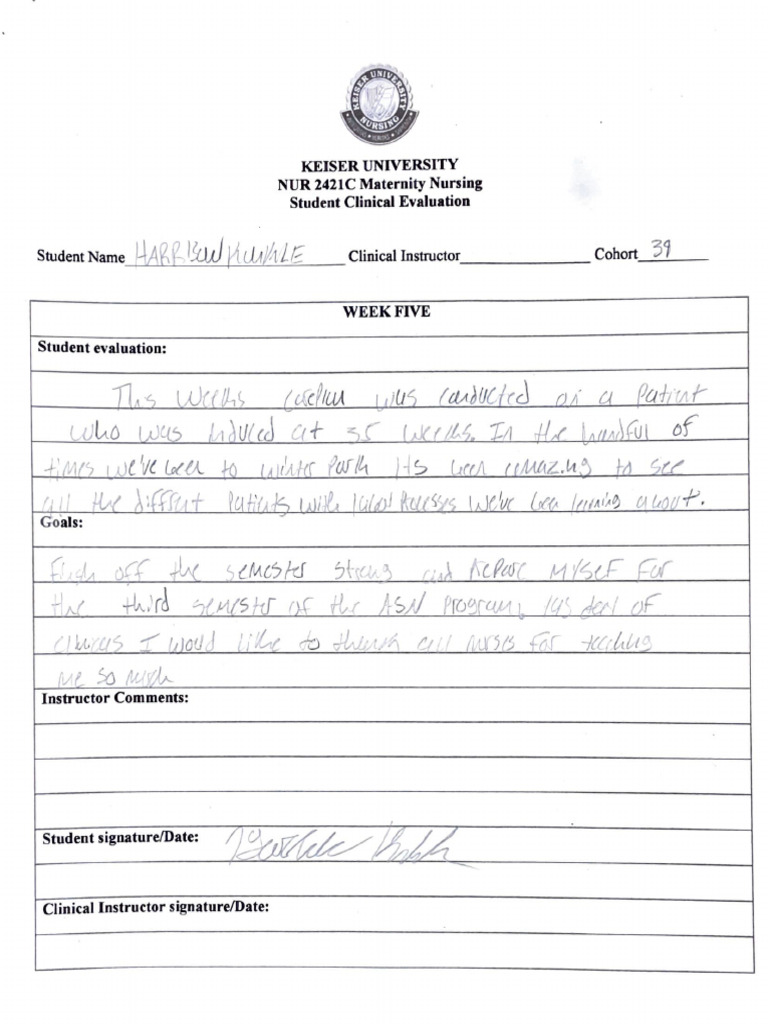 KEISER UNIVERSITY
NURSING
KEISER UNIVERSITY
NUR 2421C Maternity Nursing
Student Clinical Evaluation
Student Name HARRISON Clinical Instructor Cohort 39
WEEK FIVE
Student evaluation:
This weeks careplan was conducted on a patient
who was induced at 35 weeks. In the handful of
times we've been to winter park its been to see
all the diffrent patients with we've been learning about.
Goals:
off the semester strong and myself for
the third semester of the ASN Program,
I would like to all nurses for
me so much
Instructor Comments:
Student signature/Date:
Clinical Instructor signature/Date: